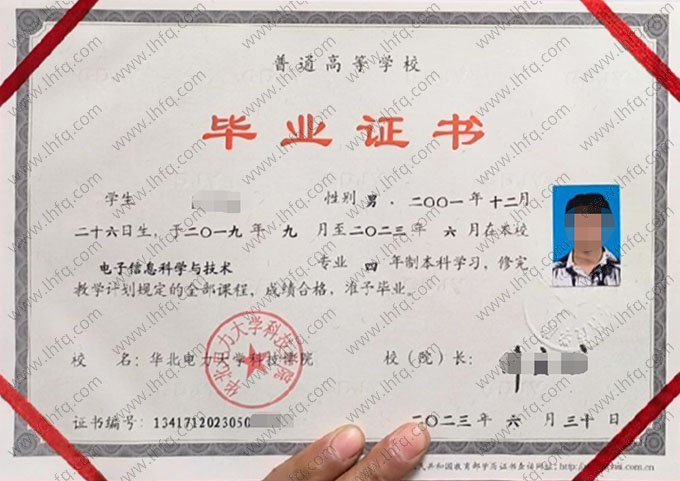 普通高等学校
毕业证书
学生 性别 男 , 二〇〇一 年 十二 月
二十六日生, 于二〇一九 年 九 月至二〇二三年 六 月在本校
电子信息科学与技术 专业 四 年制本科学习, 修完
教学计划规定的全部课程, 成绩合格, 准予毕业。
华北电力大学科技学院
校 名: 华北电力大学科技学院 校(院)长:
证书编号: 1341712023050 二〇二三年 六 月 三十 日
民共和国教育部学历证书查询网址: http://
www.lhfq.com